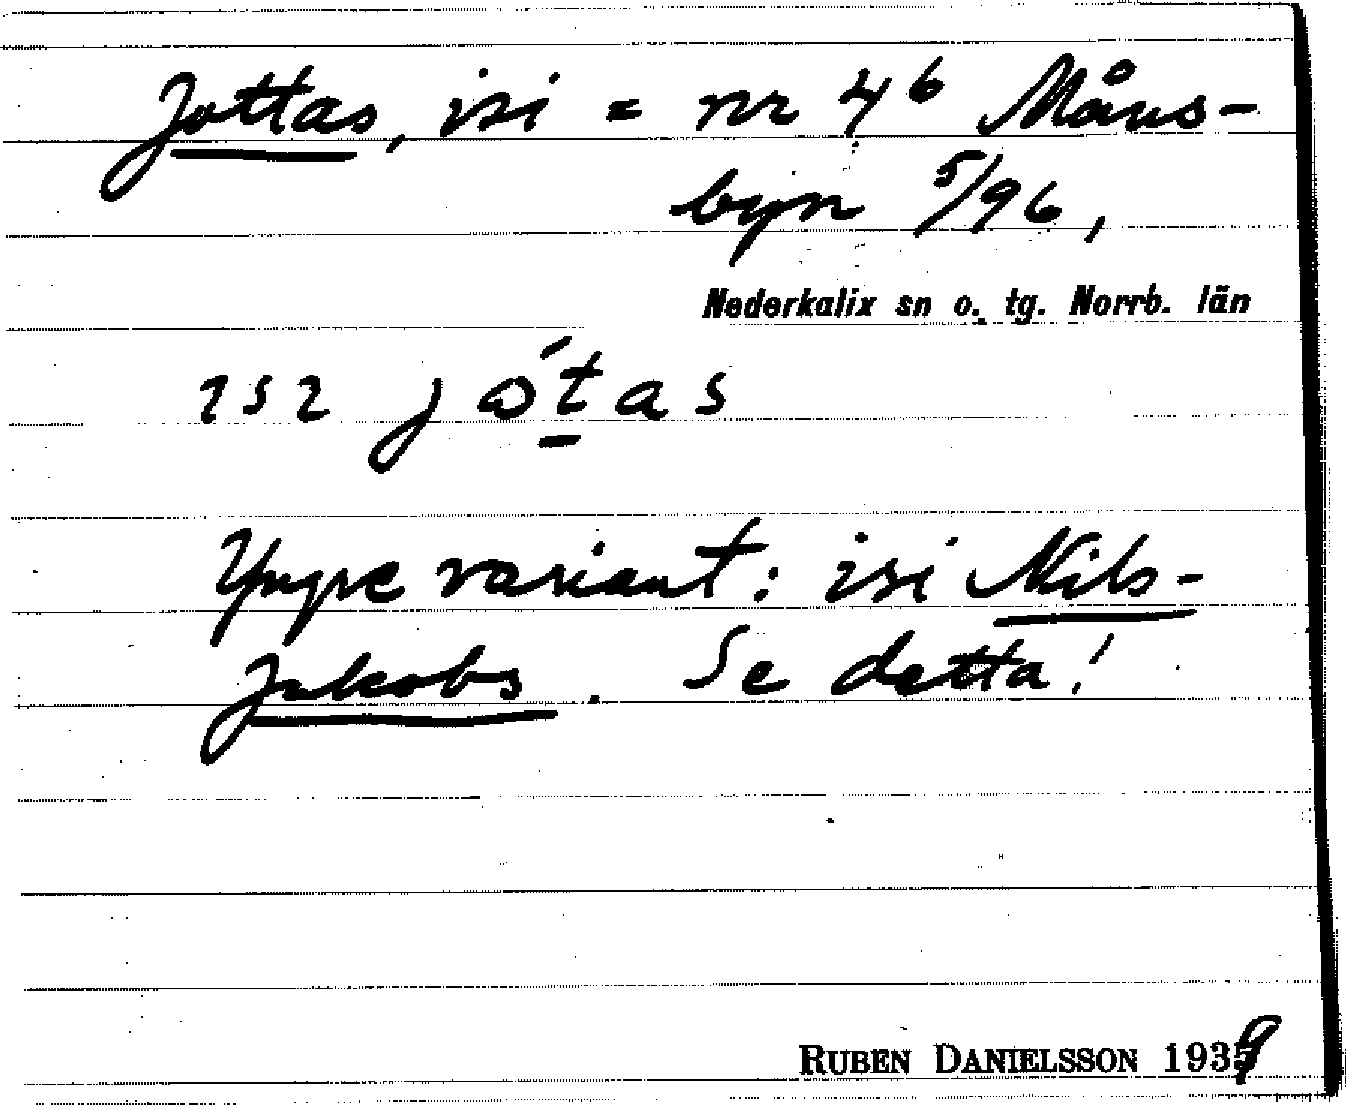 Jottas, isi = nr 4⁶ Måns-
byn 5/96,
Nederkalix sn o. tg. Norrb. län
ısı jo̗tas
Yngre variant: isi Nils-
Jakobs. Se detta!
RUBEN DANIELSSON 1939